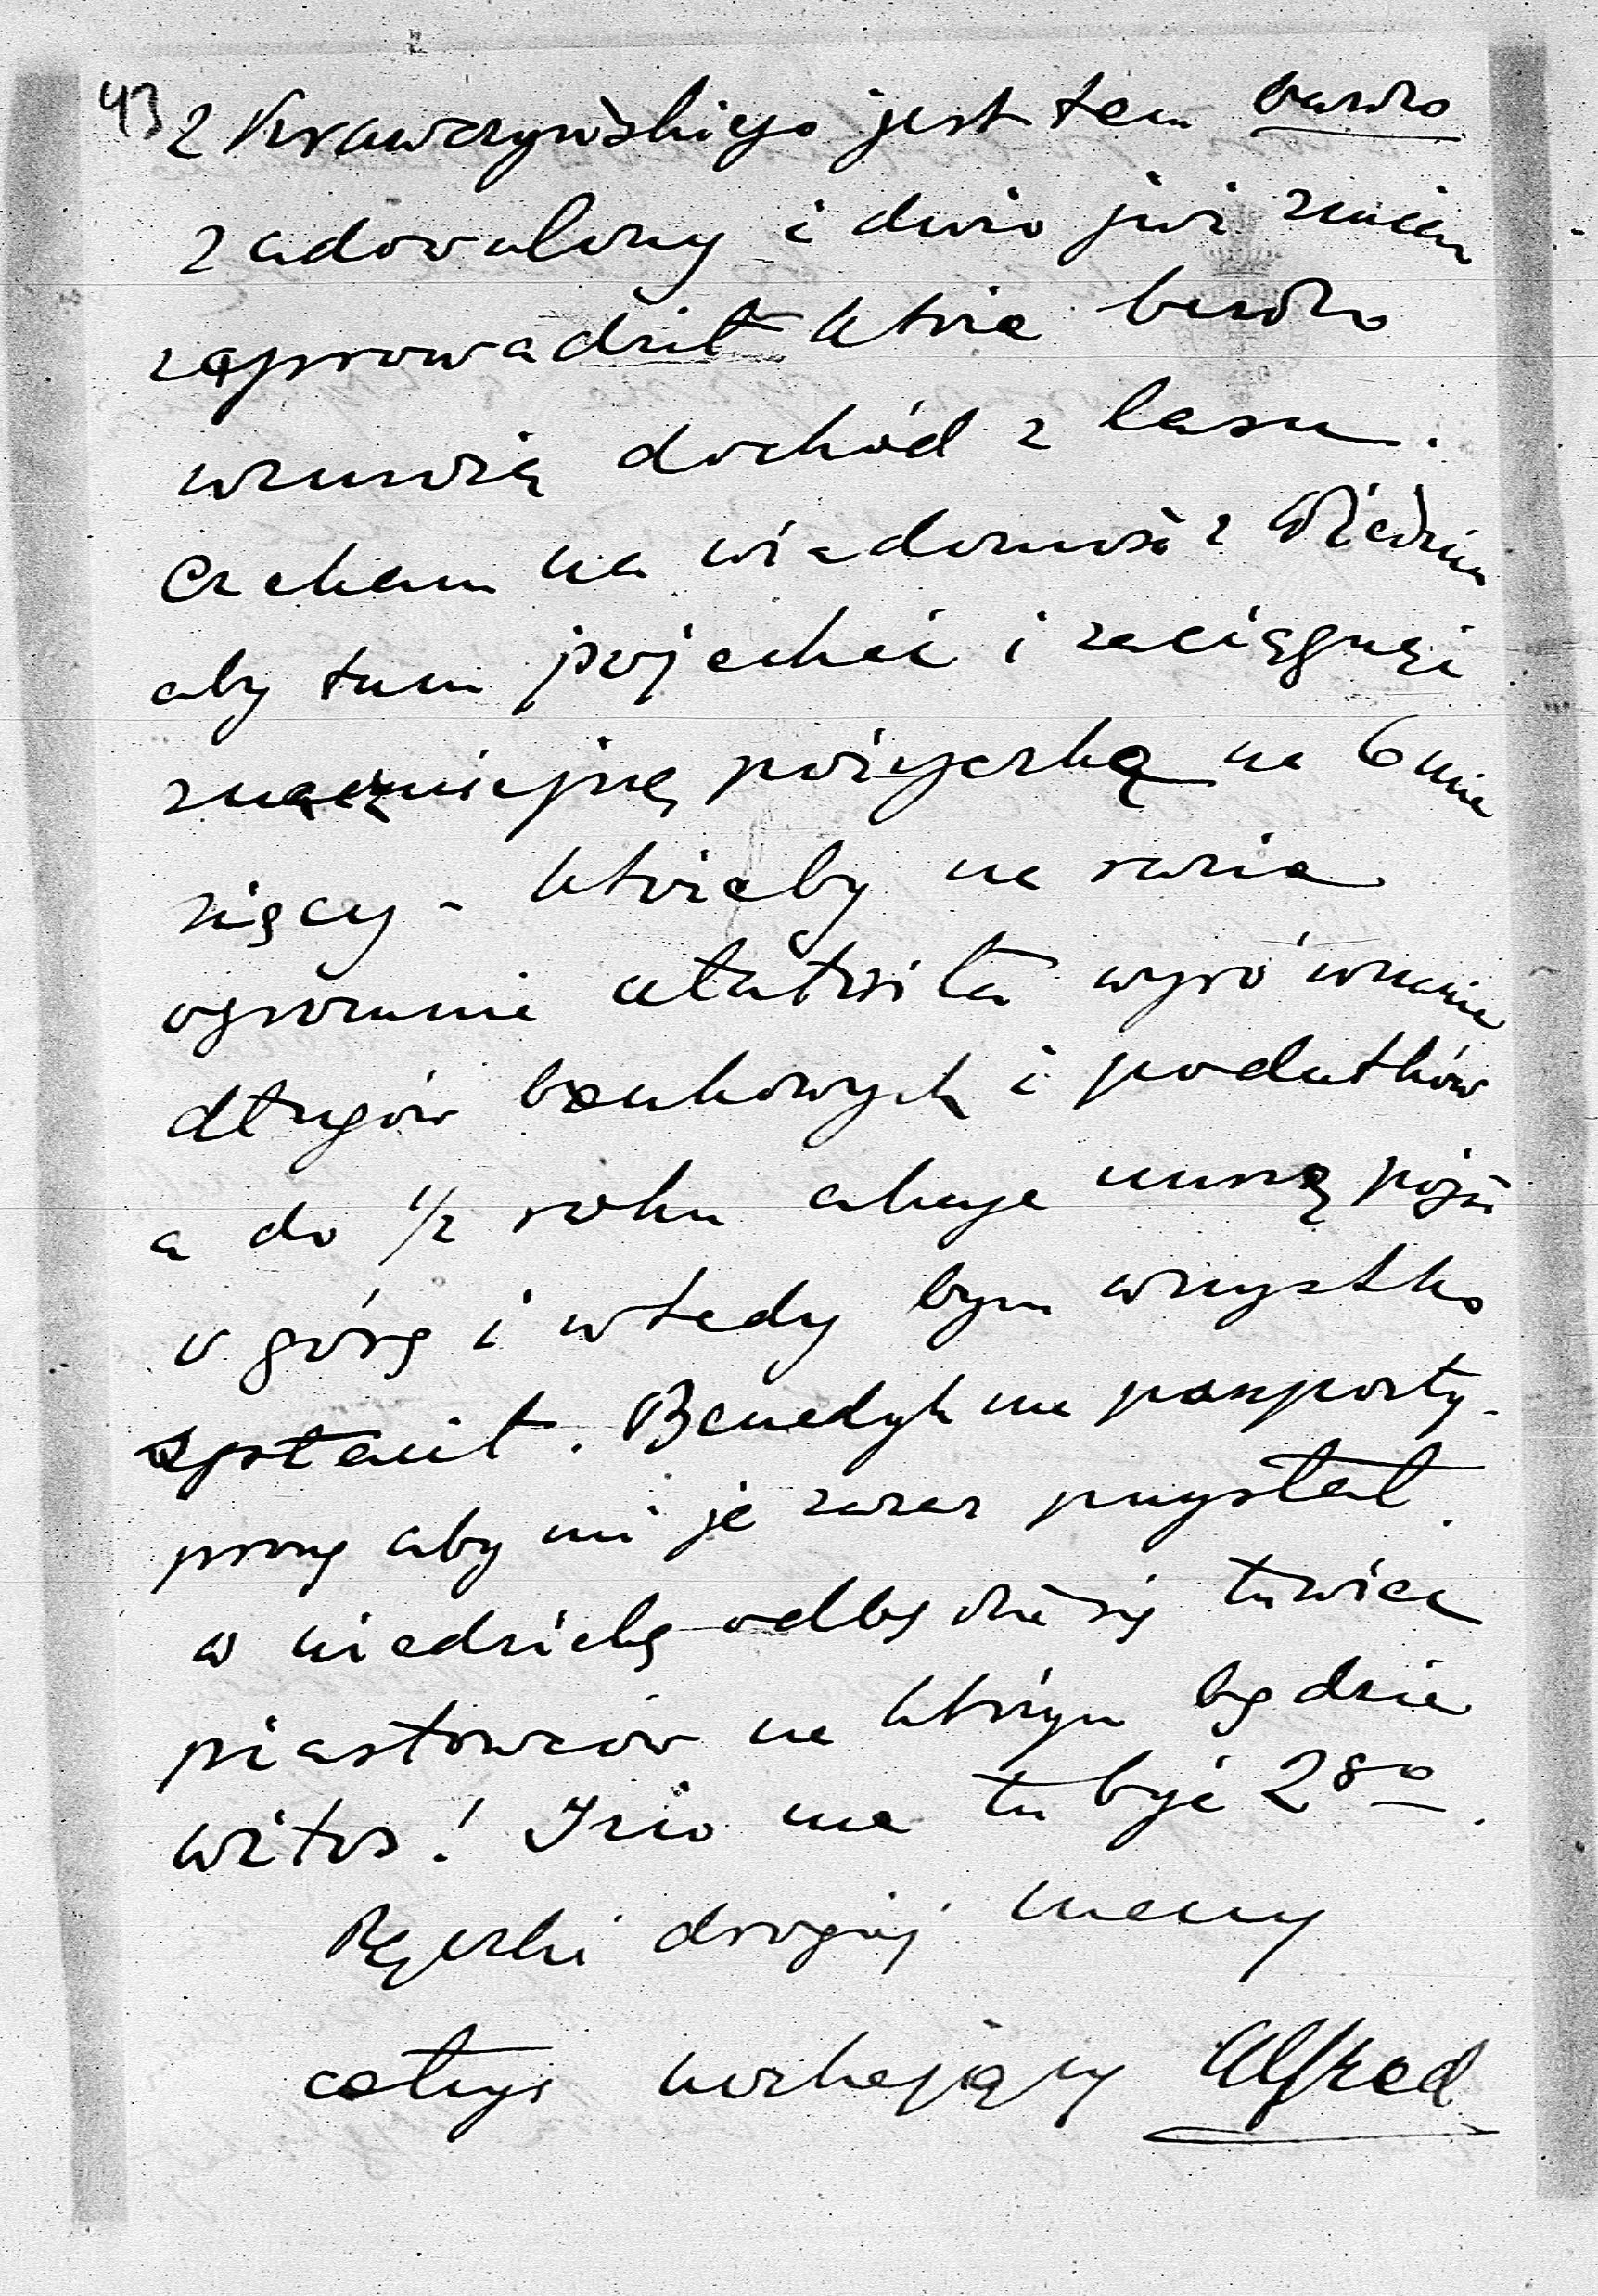 43
Z Krawczyńskiego jestem bardzo
zadowolony i dużo już zmian
zaprowadził które bardzo
wzmożą dochód z lasu.
Czekam na wiadomość z Wiednia
aby tam pojechać i zaciągnąć
znaczniejszą pożyczkę na 6 mie
sięcy - któraby na razie
ogromnie ułatwiła wyrównanie
długów bankowych i podatków
a do 1/2 roku akcye muszą pójść
w górę i wtedy bym wszystko
spłacił. Benedyk ma paszporty -
proszę aby mi je zaraz przysłał.
w niedzielę odbędzie się tu wiec
piastowców na którym będzie
Witos! Izio ma tu być 28go.
Rączki drogiej mamy
całuję kochający Alfred